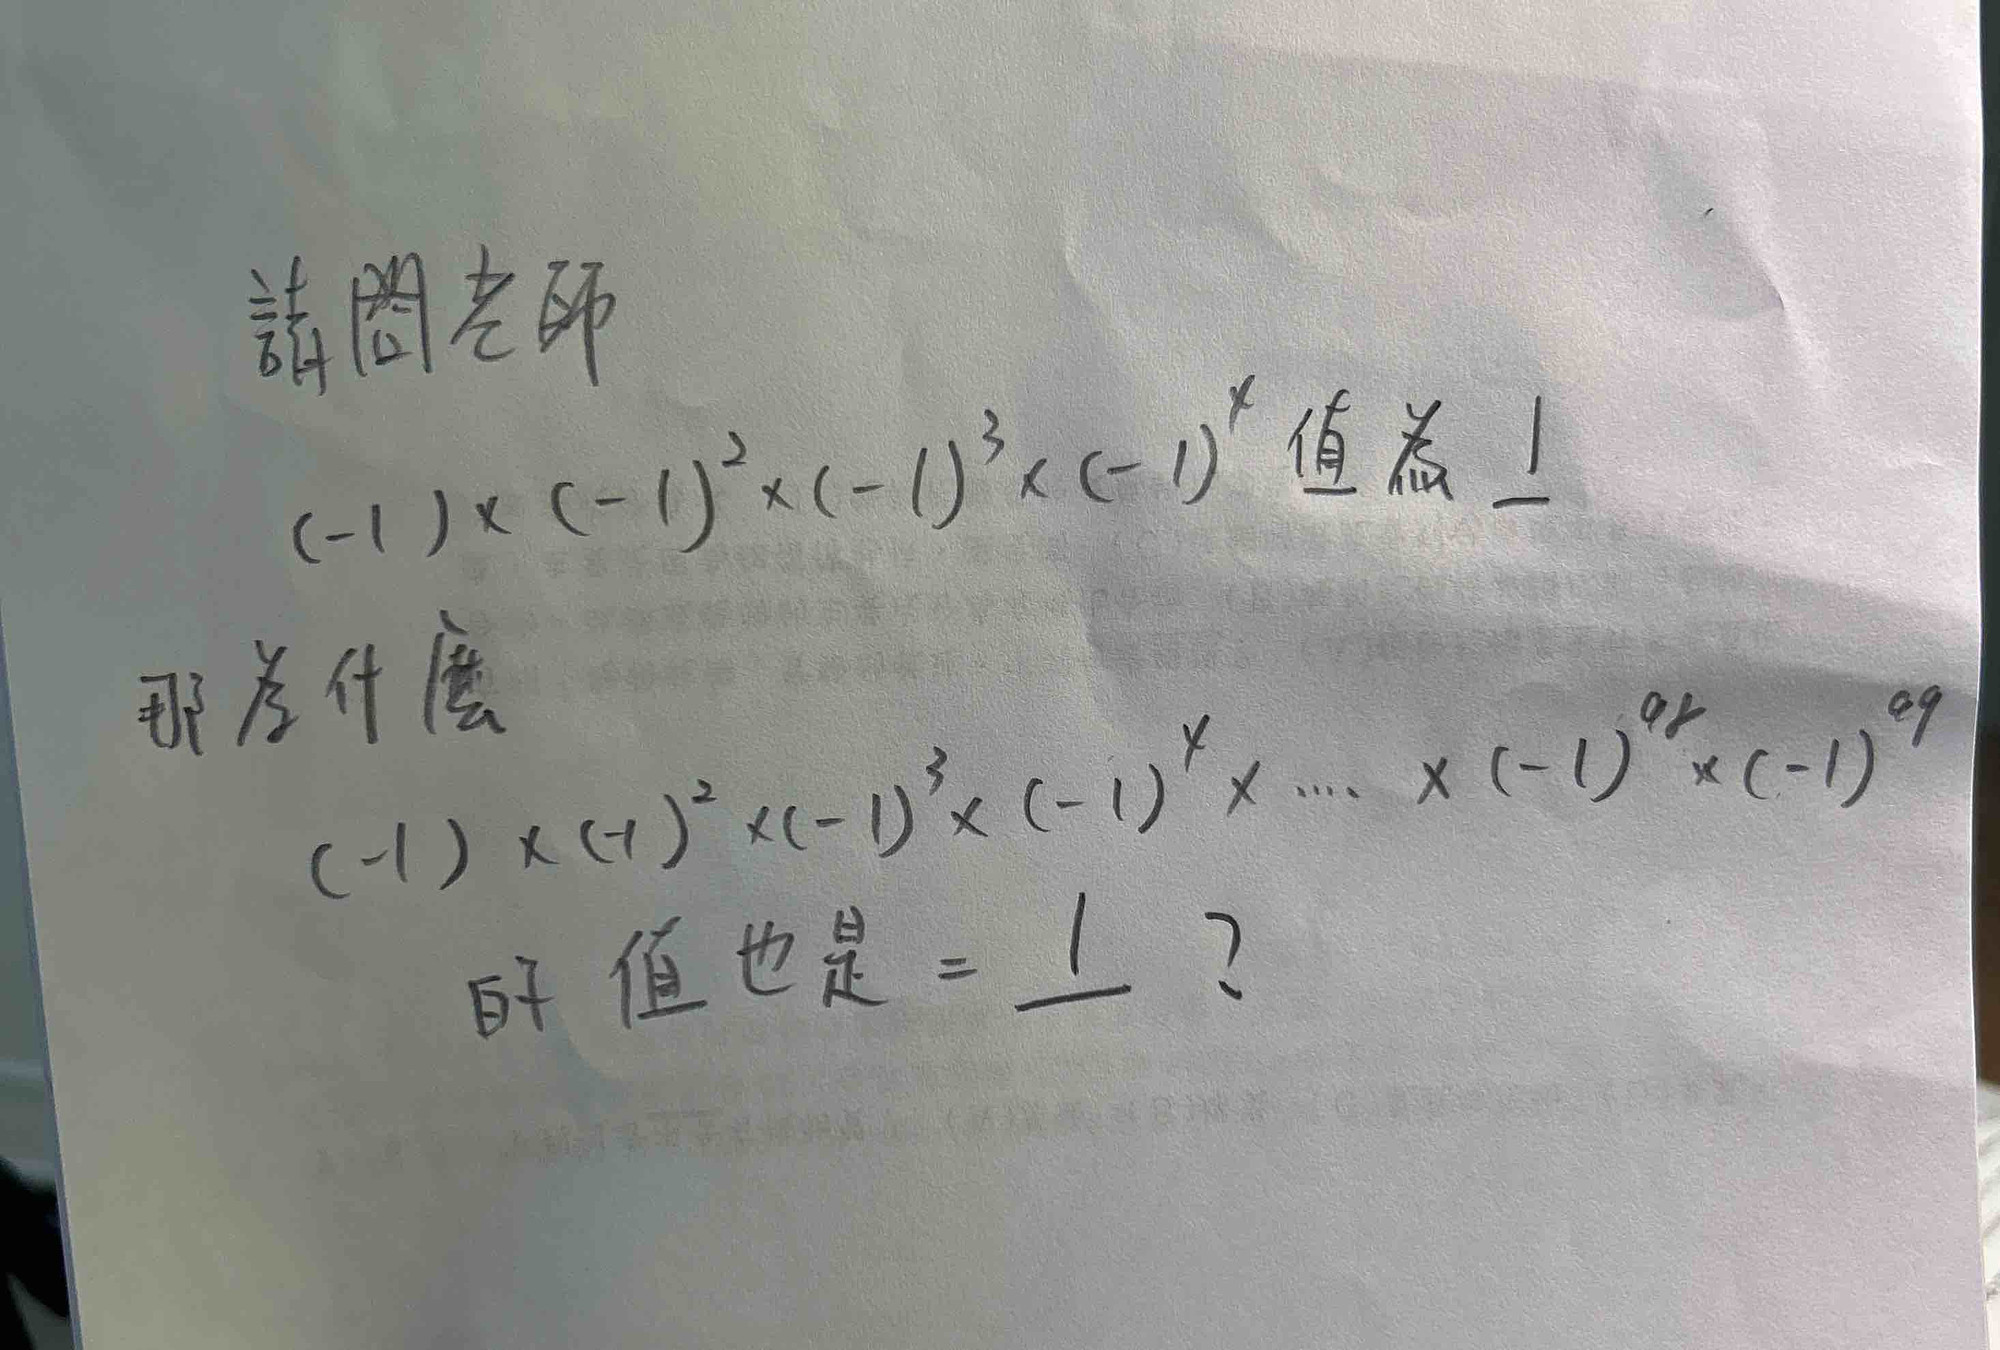 請問老師
(-1)×(-1)²×(-1)³×(-1)⁴ 值為 1
那為什麼
(-1)×(-1)²×(-1)³×(-1)⁴×....×(-1)⁹⁸×(-1)⁹⁹
的值也是=1?